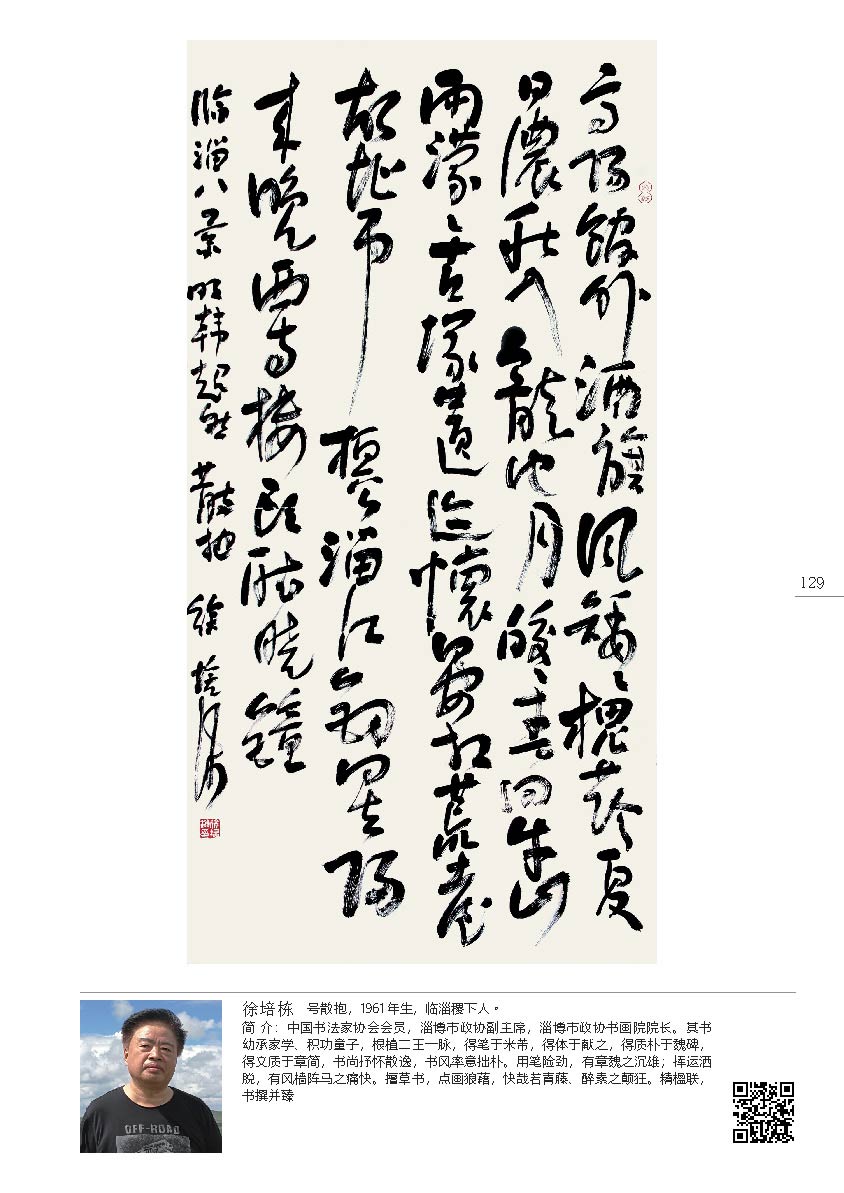 高陽館外酒旗風矮〻槐蔭夏
日濃秋入龍池月皎〻春回牛山
雨濛〻古塚遺迹懷晏相荒臺
故址吊桓公淄江釣罷歸
來晚西寺樓頭聽曉鐘
臨淄八景 明韓起 散抱 徐培栋
129
徐培栋 号散抱，1961年生，临淄稷下人。
简 介：中国书法家协会会员，淄博市政协副主席，淄博市政协书画院院长。其书
幼承家学、积功童子，根植二王一脉，得笔于米芾，得体于献之，得质朴于魏碑，
得文质于章简，书尚抒怀散逸，书风率意拙朴。用笔险劲，有章魏之沉雄；挥运洒
脱，有风樯阵马之痛快。擅草书，点画狼藉，快哉若青藤、醉素之颠狂。精楹联，
书撰并臻
OFF-ROAD